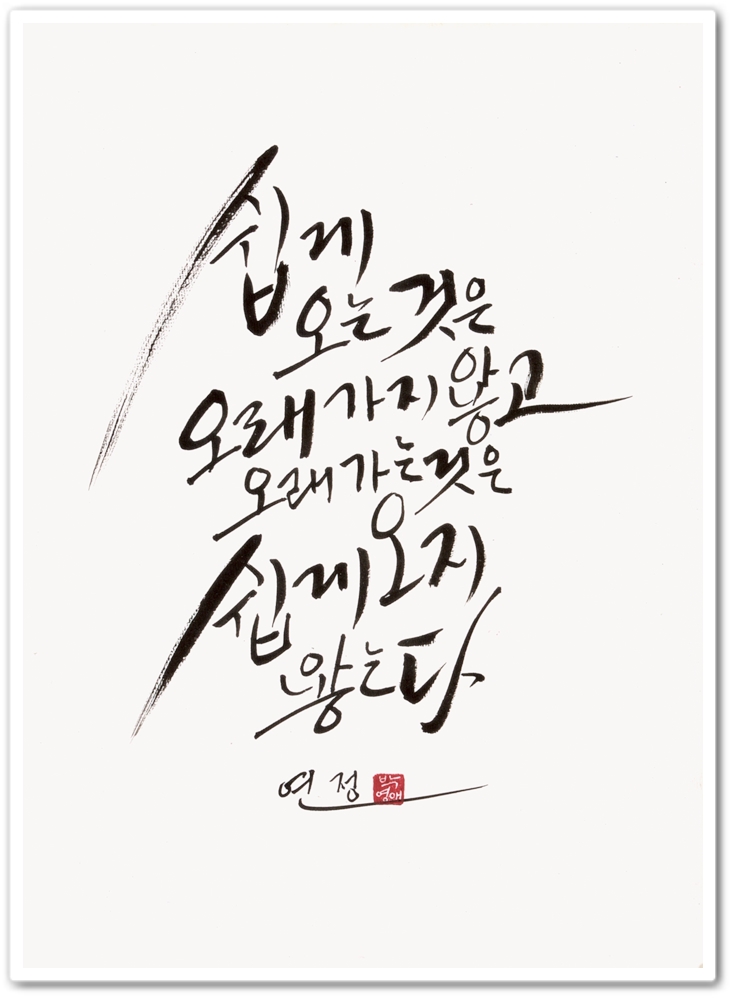 쉽게
오는 것은
오래 가지 않고
오래 가는 것은
쉽게 오지
않는다
연정
박영애